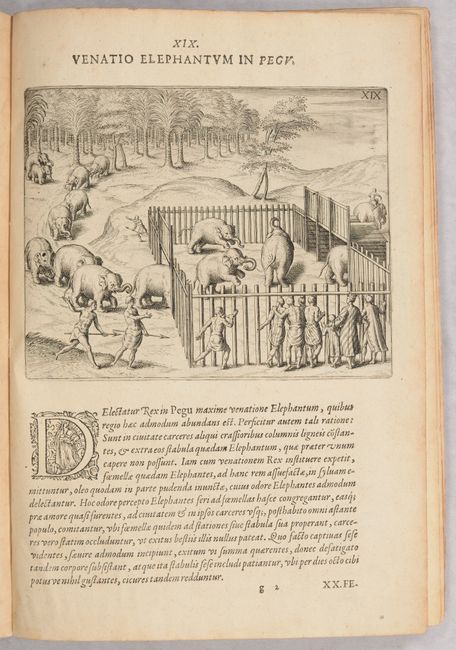 XIX.
VENATIO ELEPHANTVM IN PEGV.
XIX
DElectatur Rex in Pegu maxime venatione Elephantum, quibus
regio hæc admodum abundans est. Perficitur autem tali ratione:
Sunt in ciuitate carceres aliqui crassioribus columnis ligneis cōstan-
tes, & extra eos stabula quædam Elephantum, quæ præter vnum
capere non possunt. Iam cum venationem Rex instituere expetit,
fæmellæ quædam Elephantes, ad hanc rem assuefactæ, in syluam e-
mittuntur, oleo quodam in parte pudenda inunctæ, cuius odore Elephantes admodum
delectantur. Hoc odore percepto Elephantes feri ad fæmellas hasce congregantur, easq́;
præ amore quasi furentes, ad ciuitatem & in ipsos carceres vsq́;, posthabito omni astante
populo, comitantur, vbi fæmellæ quidem ad stationes siue stabula sua properant, carce-
res vero statim occluduntur, vt exitus bestiis illis nullus pateat. Quo facto captiuas sese
videntes, sæuire admodum incipiunt, exitum vi summa quærentes, donec defatigato
tandem corpore subsistant, atque ita stabulis sese includi patiantur, vbi per dies octo cibi
potusve nihil gustantes, cicures tandem redduntur.
g 2
XX. FE-